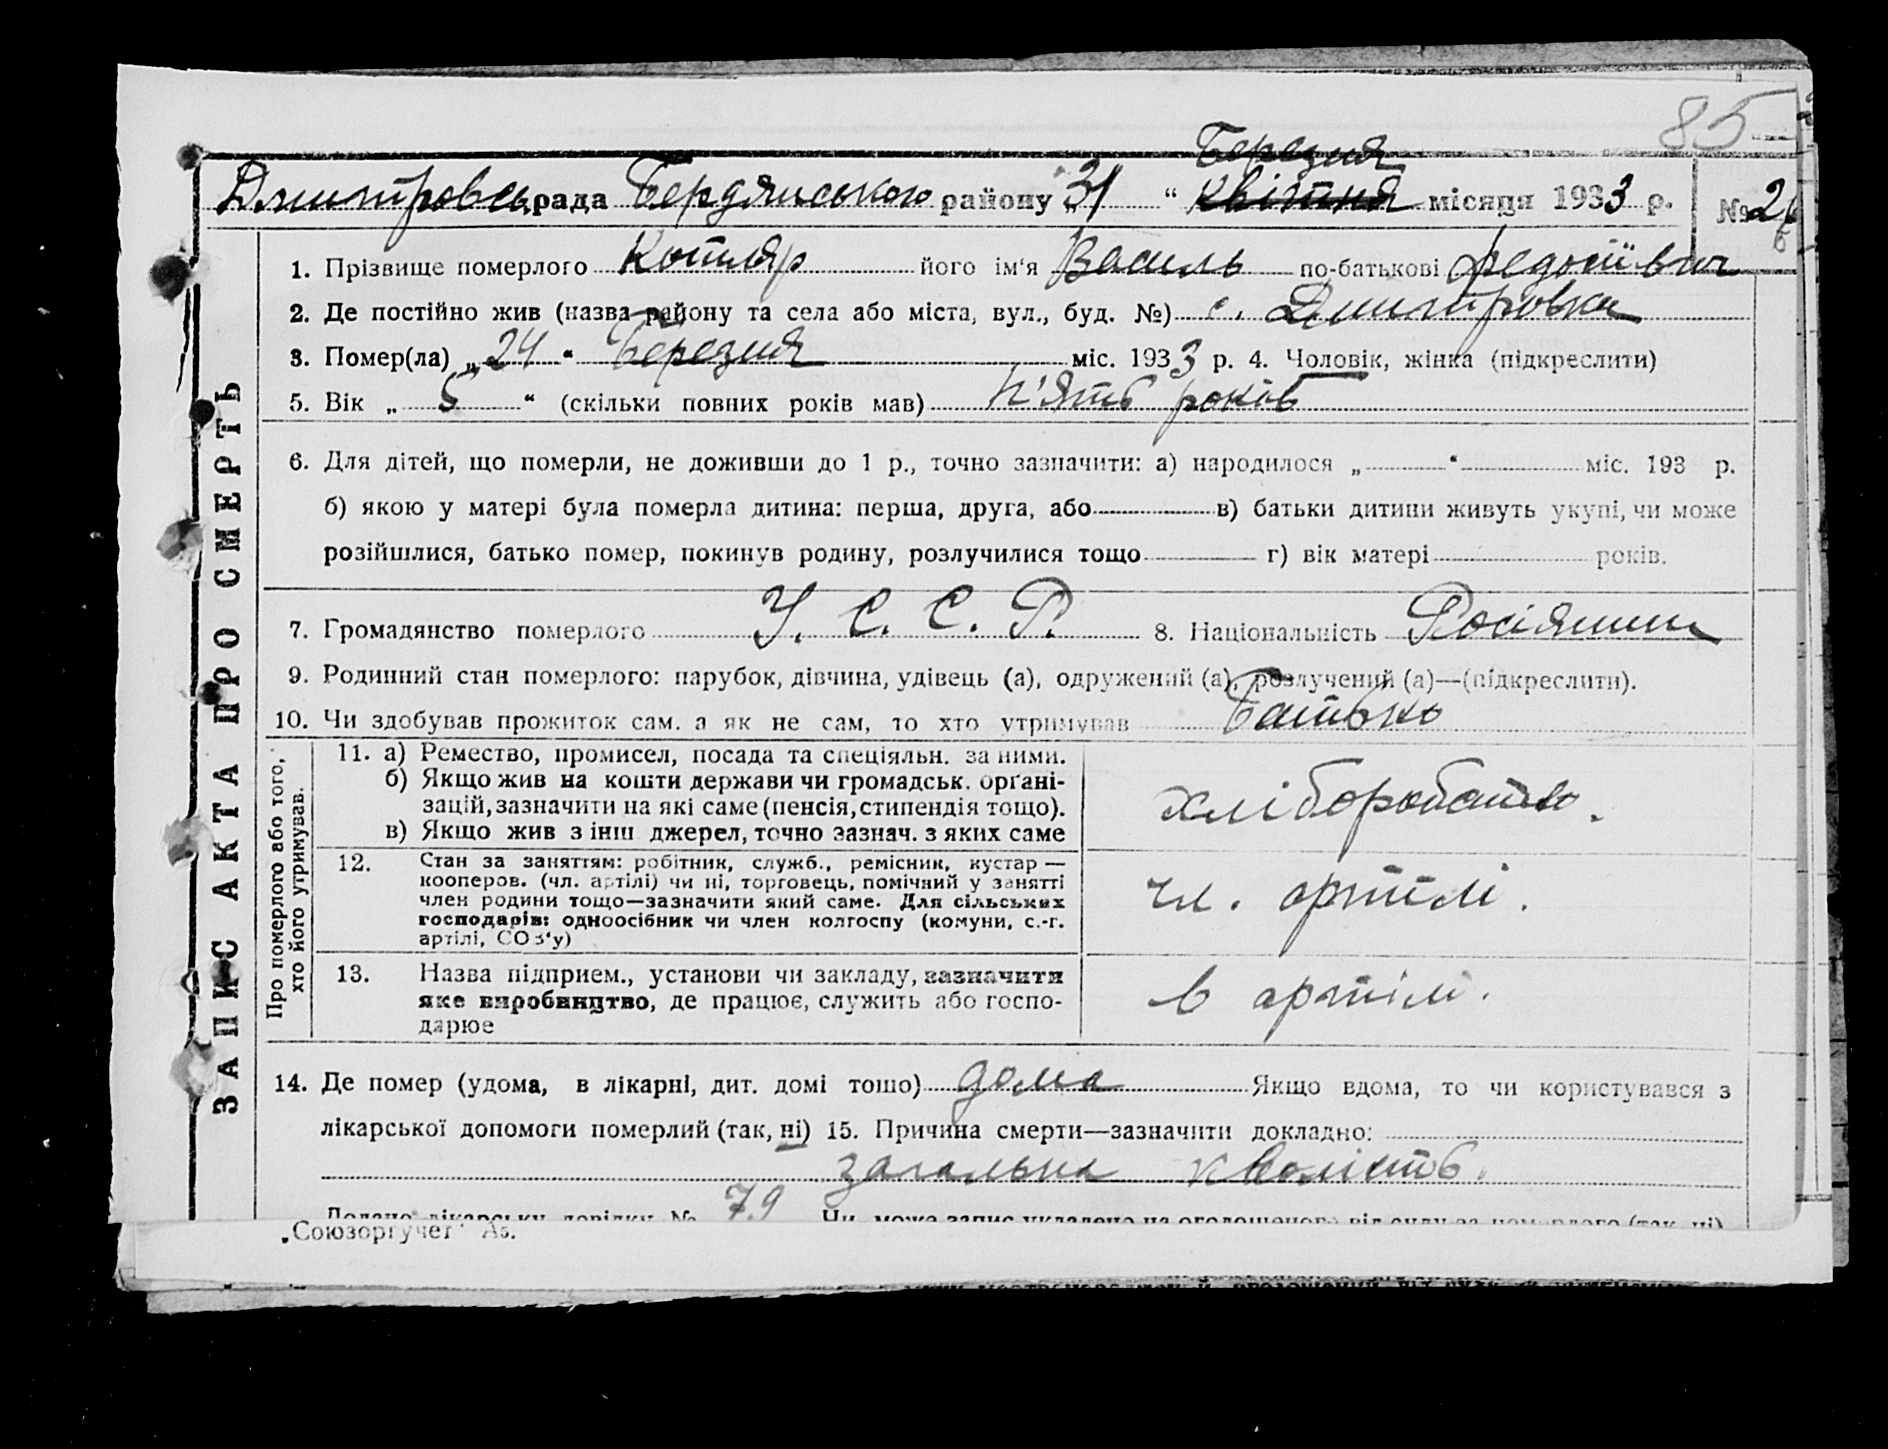 85
Березня
Дмитровсь. рада Бердянського району „31“ квітня місяця 1933 р. № 26
1. Прізвище померлого Котляр його ім'я Василь по-батькові Федотієвич
2. Де постійно жив (назва району та села або міста, вул., буд. №) с. Дмитровка
3. Помер(ла) „24“ Березня міс. 1933 р. 4. Чоловік, жінка (підкреслити)
5. Вік „5“ (скільки повних років мав) п'ять років
6. Для дітей, що померли, не доживши до 1 р., точно зазначити: а) народилося „ “ міс. 193 р.
б) якою у матері була померла дитина: перша, друга, або в) батьки дитини живуть укупі, чи може
розійшлися, батько помер, покинув родину, розлучилися тощо г) вік матері років.
7. Громадянство померлого У. С. С. Р. 8. Національність Росіянин
9. Родинний стан померлого: парубок, дівчина, удівець (а), одружений (а), розлучений (а)—(підкреслити).
10. Чи здобував прожиток сам, а як не сам, то хто утримував Батько
ЗАПИС АКТА ПРО СМЕРТЬ
Про померлого або того,
хто його утримував.
11. а) Ремество, промисел, посада та спеціяльн. за ними.
б) Якщо жив на кошти держави чи громадськ. орґані-
зацій, зазначити на які саме (пенсія, стипендія тощо).
в) Якщо жив з інш джерел, точно зазнач. з яких саме
хлібороб
12. Стан за заняттям: робітник, служб., ремісник, кустар —
кооперов. (чл. артілі) чи ні, торговець, помічний у занятті
член родини тощо—зазначити який саме. Для сільських
господарів: одноосібник чи член колгоспу (комуни, с.-г.
артілі, СОЗ'у)
чл. артілі.
13. Назва підприєм., установи чи закладу, зазначити
яке виробництво, де працює, служить або госпо-
дарює
в артілі.
14. Де помер (удома, в лікарні, дит. домі тощо) дома Якщо вдома, то чи користувався з
лікарської допомоги померлий (так, ні) 15. Причина смерти—зазначити докладно:
загальна кволість.
Додано лікарську довідку № 79 Чи може запис укладено на оголошеного від суду за померлого (так, ні)
„Союзоргучет“